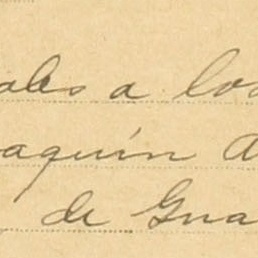 ales a los
aquín A
de Gua